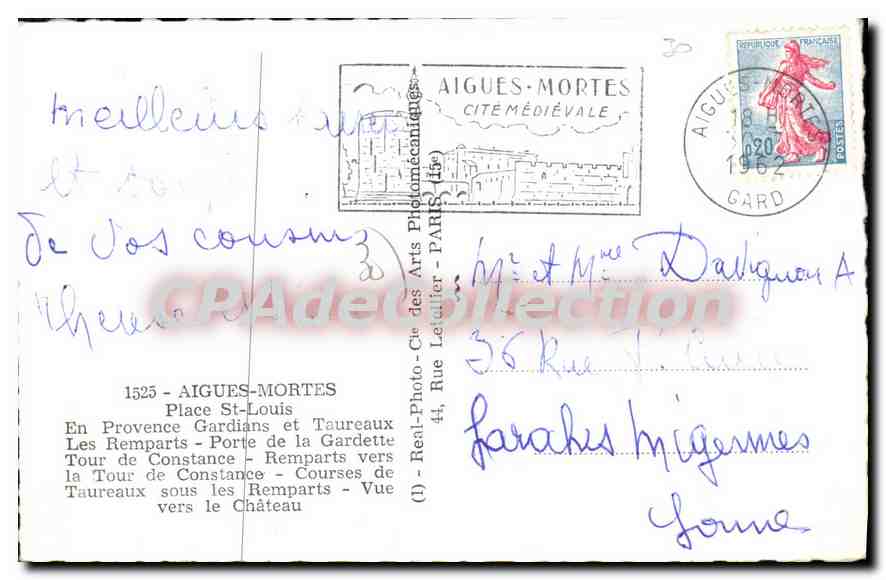 30
AIGUES-MORTES
CITÉ MÉDIÉVALE
REPUBLIQUE FRANÇAISE
0,20
POSTES
AIGUES-MORTES
18 H
1962
GARD
Meilleurs
et
de vos cousins
30
Mr et Mme Davignon A
36 Rue
Migennes
Yonne
CPAdeCollection
1525 - AIGUES-MORTES
Place St-Louis
En Provence Gardians et Taureaux
Les Remparts - Porte de la Gardette
Tour de Constance - Remparts vers
la Tour de Constance - Courses de
Taureaux sous les Remparts - Vue
vers le Château
(1) - Real-Photo - Cie des Arts Photomécaniques
44, Rue Letellier - PARIS (15e)